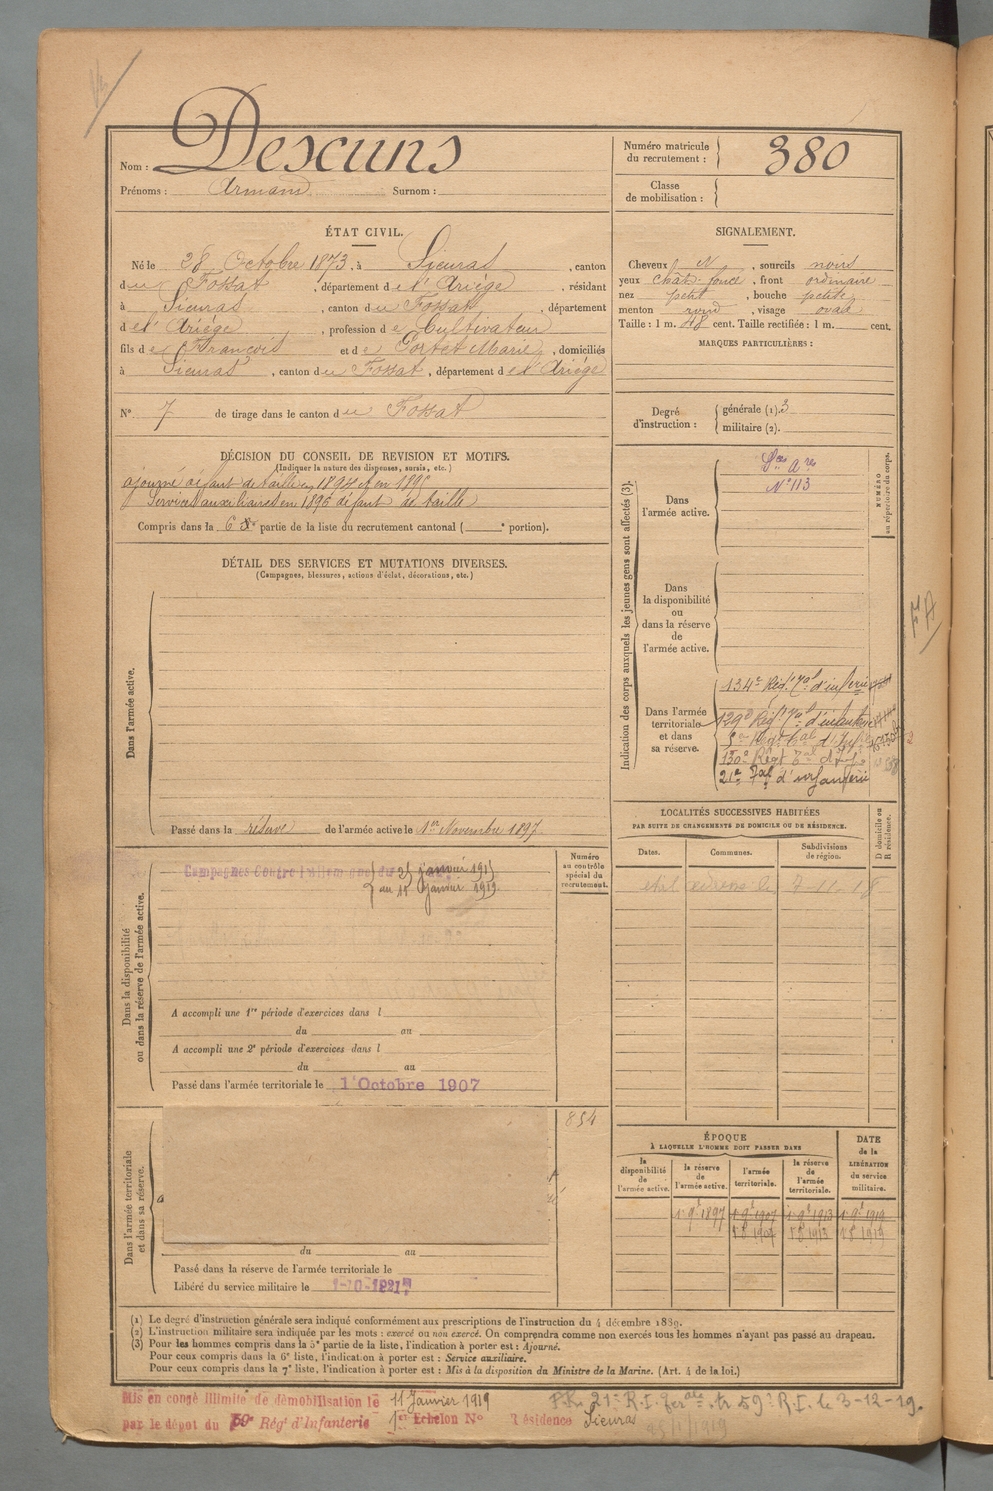 Nom : Descuns
Prénoms : Armand Surnom :
Numéro matricule du recrutement : 380
Classe de mobilisation :
ÉTAT CIVIL.
Né le 28 Octobre 1873, à Sieuras, canton
du Fossat, département de l'Ariège, résidant
à Sieuras, canton du Fossat, département
de l'Ariège, profession de Cultivateur
fils de François et de Portet Marie, domiciliés
à Sieuras, canton du Fossat, département de l'Ariège
N° 7 de tirage dans le canton du Fossat
SIGNALEMENT.
Cheveux N, sourcils noirs
yeux chât. foncé, front ordinaire
nez petit, bouche petite
menton rond, visage oval
Taille : 1 m. 48 cent. Taille rectifiée : 1 m. cent.
MARQUES PARTICULIÈRES :
Degré d'instruction : générale (1). 3
militaire (2).
DÉCISION DU CONSEIL DE REVISION ET MOTIFS.
(Indiquer la nature des dispenses, sursis, etc.)
ajourné défaut de taille en 1894 et en 1895
Services auxiliaires en 1896 défaut de taille
Compris dans la 6e partie de la liste du recrutement cantonal ( e portion).
DÉTAIL DES SERVICES ET MUTATIONS DIVERSES.
(Campagnes, blessures, actions d'éclat, décorations, etc.)
Dans l'armée active.
Passé dans la réserve de l'armée active le 1er Novembre 1897.
Indication des corps auxquels les jeunes gens sont affectés (3).
NUMÉRO au répertoire du corps.
Dans l'armée active.
Sces Ares
N° 113
Dans la disponibilité ou dans la réserve de l'armée active.
Dans l'armée territoriale et dans sa réserve.
134e Rég. Tal d'infanterie
129e Rég. Tal d'infanterie
5e Régt Tal d'Infie
130e Régt Tal d'Infie
21e Tal d'infanterie
LOCALITÉS SUCCESSIVES HABITÉES
PAR SUITE DE CHANGEMENTS DE DOMICILE OU DE RÉSIDENCE.
Dates.
Communes.
Subdivisions de région.
D domicile ou R résidence.
7-11-18
Dans la disponibilité ou dans la réserve de l'armée active.
Numéro au contrôle spécial du recrutement.
Campagnes Contre l'allemagne du
janvier 1919
A accompli une 1re période d'exercices dans l
du au
A accompli une 2e période d'exercices dans l
du au
Passé dans l'armée territoriale le 1 Octobre 1907
Dans l'armée territoriale et dans sa réserve.
854
du au
Passé dans la réserve de l'armée territoriale le
Libéré du service militaire le
ÉPOQUE
À LAQUELLE L'HOMME DOIT PASSER DANS
la disponibilité de l'armée active.
la réserve de l'armée active.
l'armée territoriale.
la réserve de l'armée territoriale.
DATE de la LIBÉRATION du service militaire.
1 9e 1897 1 9e 1907 1 9e 1913 1 9e 1919
1 8 1907 1 8 1913 1 8 1919
(1) Le degré d'instruction générale sera indiqué conformément aux prescriptions de l'instruction du 4 décembre 1889.
(2) L'instruction militaire sera indiquée par les mots : exercé ou non exercé. On comprendra comme non exercés tous les hommes n'ayant pas passé au drapeau.
(3) Pour les hommes compris dans la 5e partie de la liste, l'indication à porter est : Ajourné.
Pour ceux compris dans la 6e liste, l'indication à porter est : Service auxiliaire.
Pour ceux compris dans la 7e liste, l'indication à porter est : Mis à la disposition du Ministre de la Marine. (Art. 4 de la loi.)
Mis en congé illimité de démobilisation le 11 Janvier 1919
par le dépôt du 59e Régt d'Infanterie 1er Echelon N° Résidence Sieuras
21e R.I. tr 59e R.I. le 3-12-19.